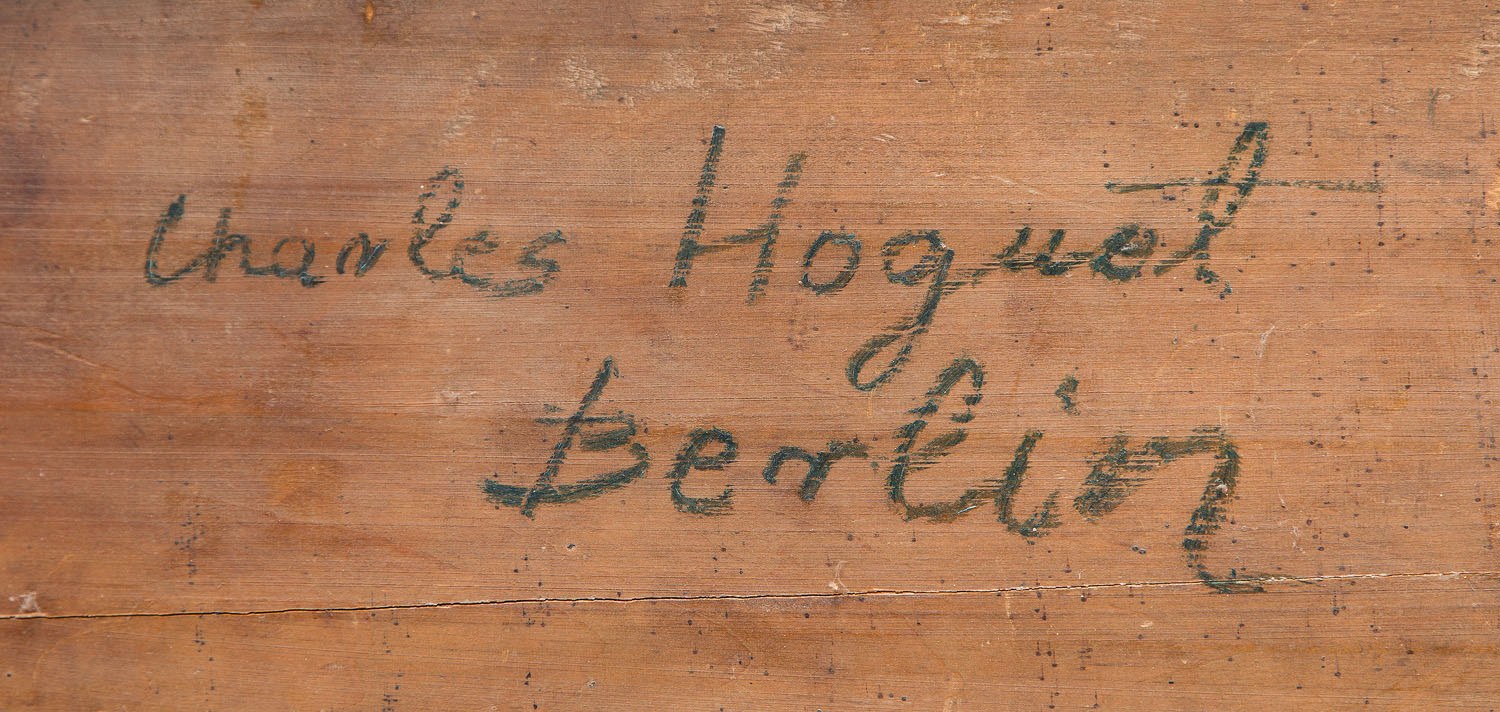 Charles Hoguet
Berlin